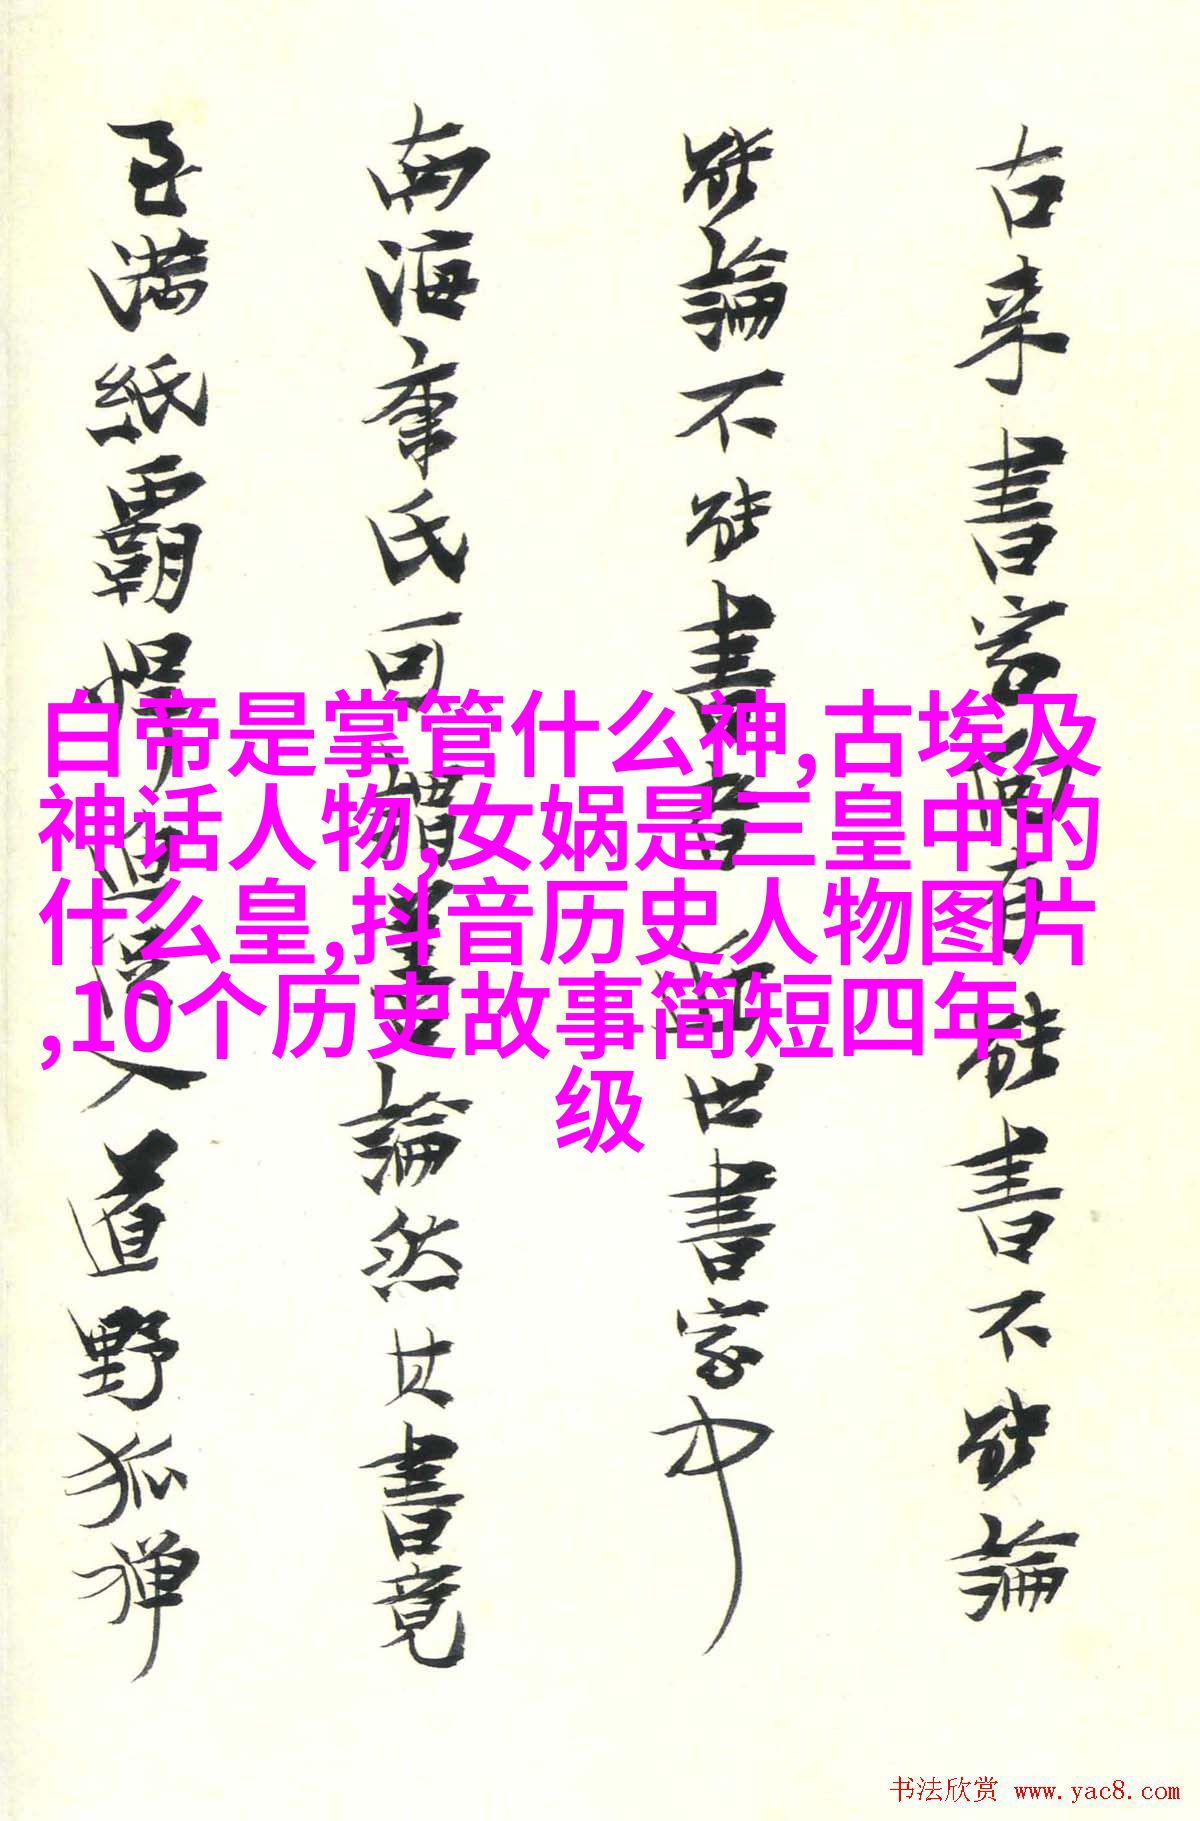 古来書家有能書不能論
能論不能書者近世書家中
南海康氏可謂善論然其書竟
至満紙霸悍入道野狐禅
白帝是掌管什么神,古埃及
神话人物,女娲是三皇中的
什么皇,抖音历史人物图片
,10个历史故事简短四年
级
书法欣赏 www.yac8.com